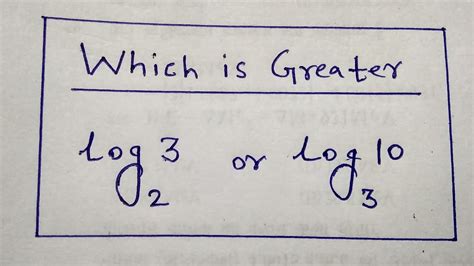 Which is Greater
log₂ 3 or log₃ 10